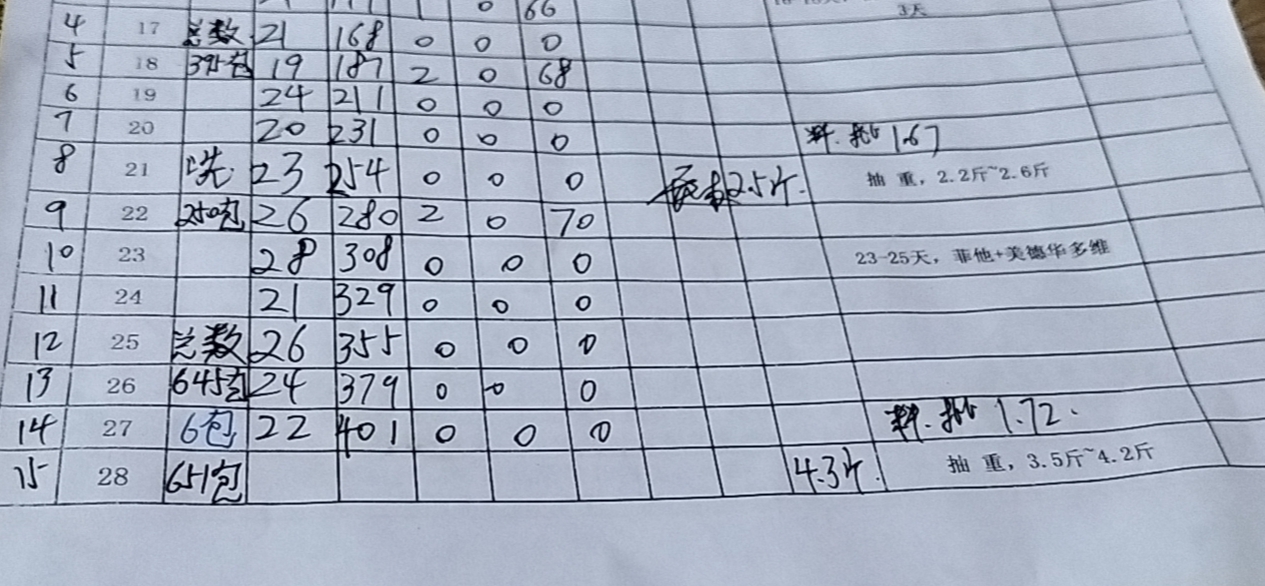 0 66
3天
4 17 总数 21 168 0 0 0
5 18 395包 19 187 2 0 68
6 19 24 211 0 0 0
7 20 20 231 0 0 0 料.批 1.67
8 21 23 254 0 0 0 2.5斤. 抽 重，2.2斤~2.6斤
9 22 250包 26 280 2 0 70
10 23 28 308 0 0 0 23-25天，菲他+美德华多维
11 24 21 329 0 0 0
12 25 总数 26 355 0 0 0
13 26 645包 24 379 0 0 0
14 27 6包 22 401 0 0 0 料.批 1.72.
15 28 651包 4.3斤. 抽 重，3.5斤~4.2斤